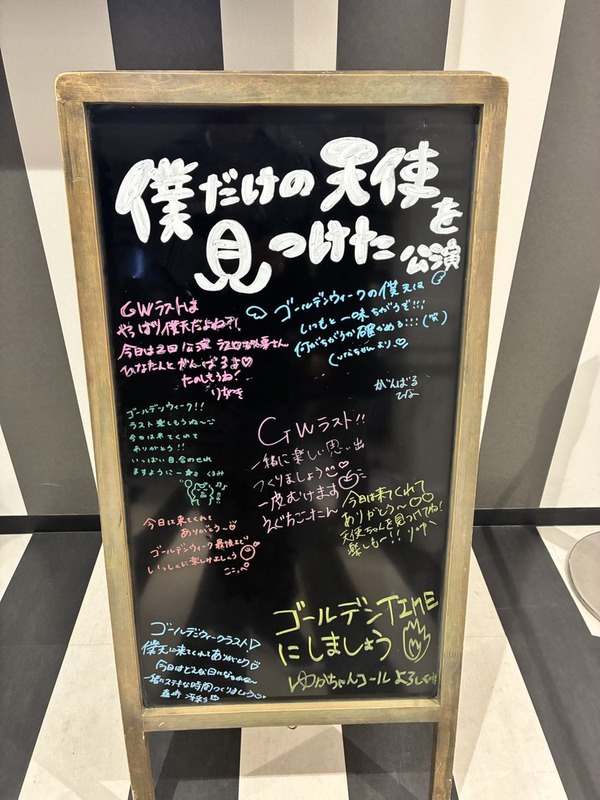 僕だけの天使を
見つけた公演
GWラストは
やっぱり僕天だよね!!
今日は2回公演
ひなたんとがんばるよ♡
たのしもうね
りなき
ゴールデンウィークの僕天は
いつもと一味ちがうで!!!
何がちがうか確かめる:::
がんばる
ひな
ゴールデンウィーク!!
ラスト楽しもうね〜
今日は来てくれて
ありがとう!!
いっぱい目、合わせれ
ますようにー くるみ
GWラスト!!
一緒に楽しい思い出
つくりましょう
一皮むけます
えぐちごーたん
今日は来てくれて
ありがとう〜
天使ちゃんを見つけてね!
楽しもー!!
今日は来てくれて
ありがとう〜
ゴールデンウィーク最後まで
いっしょに楽しみましょう
ゴールデンTIME
にしましょう
ゆかちゃんコール よろしく
ゴールデンウィークラスト
僕天に来てくれてありがとう
今日はどんな日になるかな〜
一緒にステキな時間つくりましょう